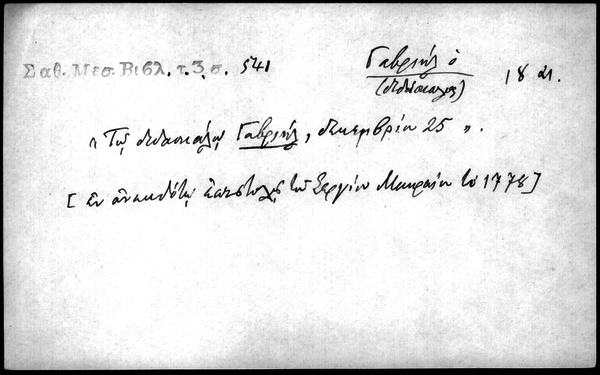 Σαθ. Μεσ. Βιβλ. τ. 3 σ. 541
Γαβριήλ ὁ
(διδάσκαλος)
18 αι.
"Τῷ διδασκάλῳ Γαβριήλ, δεκεμβρίου 25".
[Ἐν ἀνεκδότῳ ἐπιστολῇ τοῦ Σεργίου Μακραίου τῷ 1778]